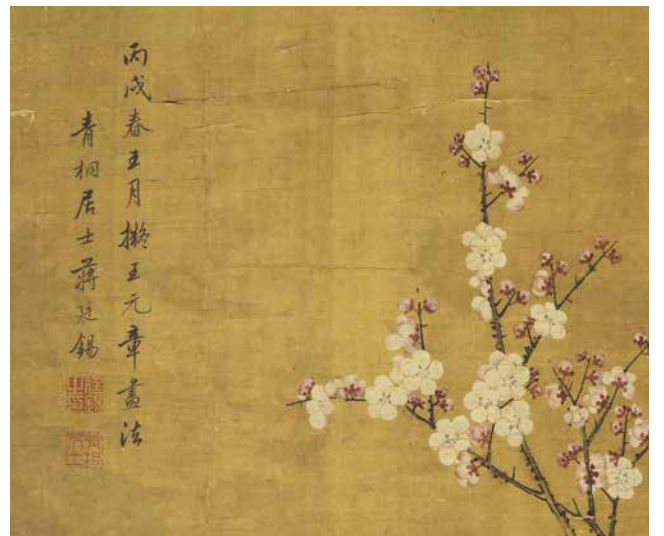 丙戌春王月擬王元章畫法
青桐居士蔣廷錫